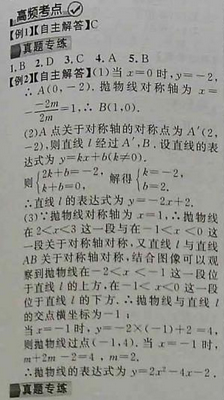 高频考点
【例1】【自主解答】C
真题专练
1. B 2. D 3. C 4. A 5. B
【例2】【自主解答】(1)当x=0时,y=-2,
∴A(0,-2). 抛物线对称轴为x=
-\frac{-2m}{2m}=1,∴B(1,0).
(2)A点关于对称轴的对称点为A'(2,
-2),则直线l经过A',B. 设直线的表
达式为y=kx+b(k≠0).
则{2k+b=-2, k+b=0, 解得{k=-2, b=2.
∴直线l的表达式为y=-2x+2.
(3)∵抛物线对称轴为x=1,∴抛物线
在2<x<3这一段与在-1<x<0这
一段关于对称轴对称,又直线l与直线
AB关于对称轴对称,结合图像可以观
察到抛物线在-2<x<-1这一段位
于直线l的上方,在-1<x<0这一段
位于直线l的下方. ∴抛物线与直线l
的交点横坐标为-1;
当x=-1时,y=-2×(-1)+2=4,
则抛物线过点(-1,4). 当x=-1时,
m+2m-2=4,m=2.
∴抛物线的表达式为y=2x²-4x-2.
真题专练